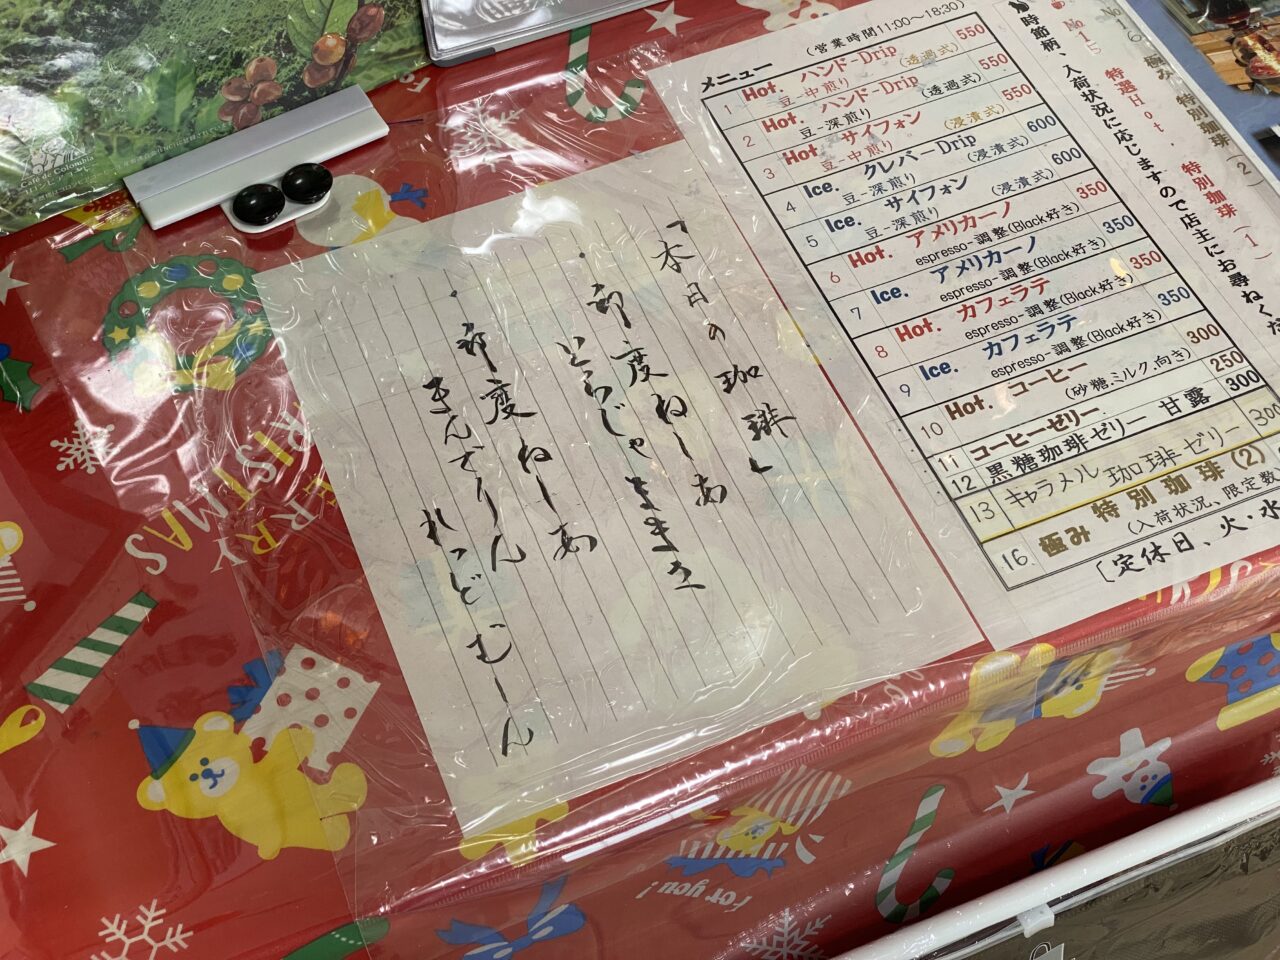 「本日の珈琲」
・印度ねーあ
とらじゃままさ
・印度ねーあ
まんでりん
れっどむーん
メニュー
(営業時間11:00～18:30)
1 Hot. ハンド-Drip 550
豆-中煎り (透過式)
2 Hot. ハンド-Drip 550
豆-深煎り (透過式)
3 Hot. サイフォン 550
豆-中煎り (浸漬式)
4 Ice. クレバーDrip 600
豆-深煎り (浸漬式)
5 Ice. サイフォン 600
豆-深煎り (浸漬式)
6 Hot. アメリカーノ 350
espresso-調整(Black好き)
7 Ice. アメリカーノ 350
espresso-調整(Black好き)
8 Hot. カフェラテ 350
espresso-調整(Black好き)
9 Ice. カフェラテ 350
espresso-調整(Black好き)
10 Hot. コーヒー 300
(砂糖.ミルク.向き)
11 コーヒーゼリー 250
12 黒糖珈琲ゼリー 甘露 300
13 キャラメル 珈琲ゼリー 300
16. 極み 特別珈琲(2)
(入荷状況、限定数
[定休日、火・水
時節柄、入荷状況に応じますので店主にお尋ねくだ
No15 特選Hot. 特別珈琲(1)
極み 特別珈琲(2)
Café de Colombia
MERRY
CHRISTMAS
For you!